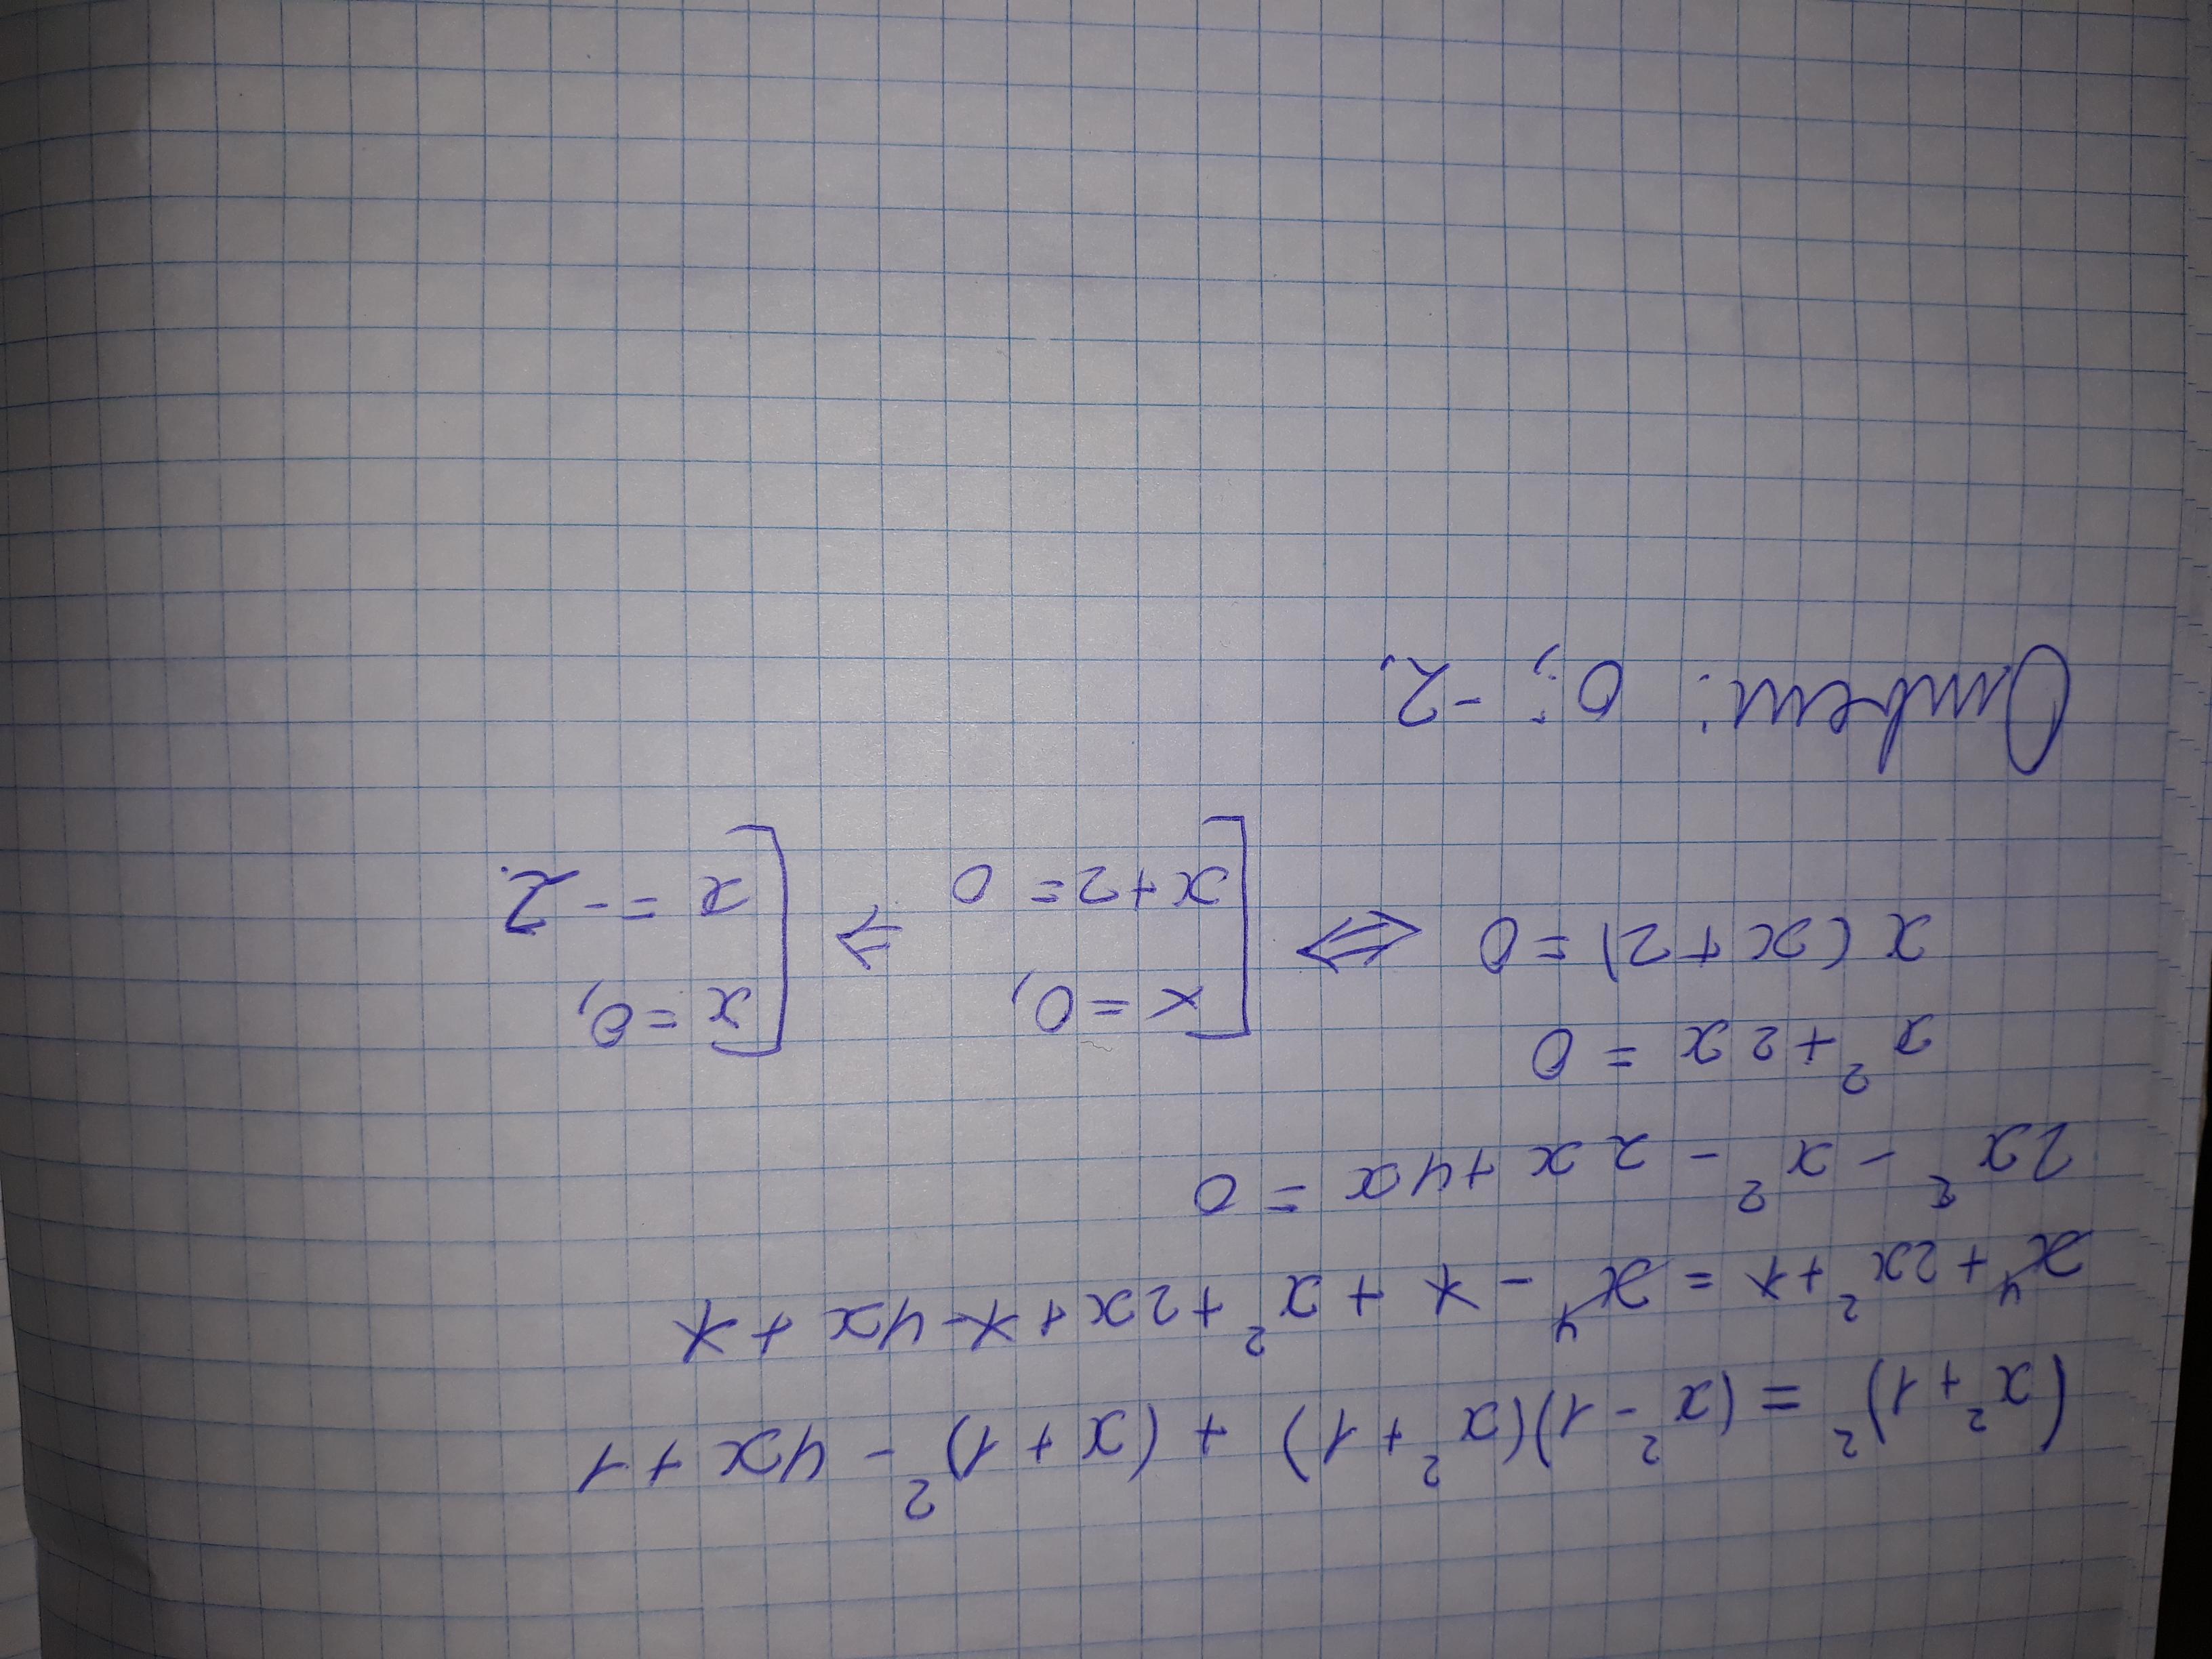 (x²+1)² = (x²-1)(x²+1) + (x+1)² - 4x+1
x⁴+2x²+1 = x⁴-1+x²+2x+1-4x+1
2x²-x²-2x+4x = 0
x²+2x = 0
x(x+2)=0 ⇔ [x=0, x+2=0 ⇒ [x=0, x=-2.
Ответ: 0; -2.